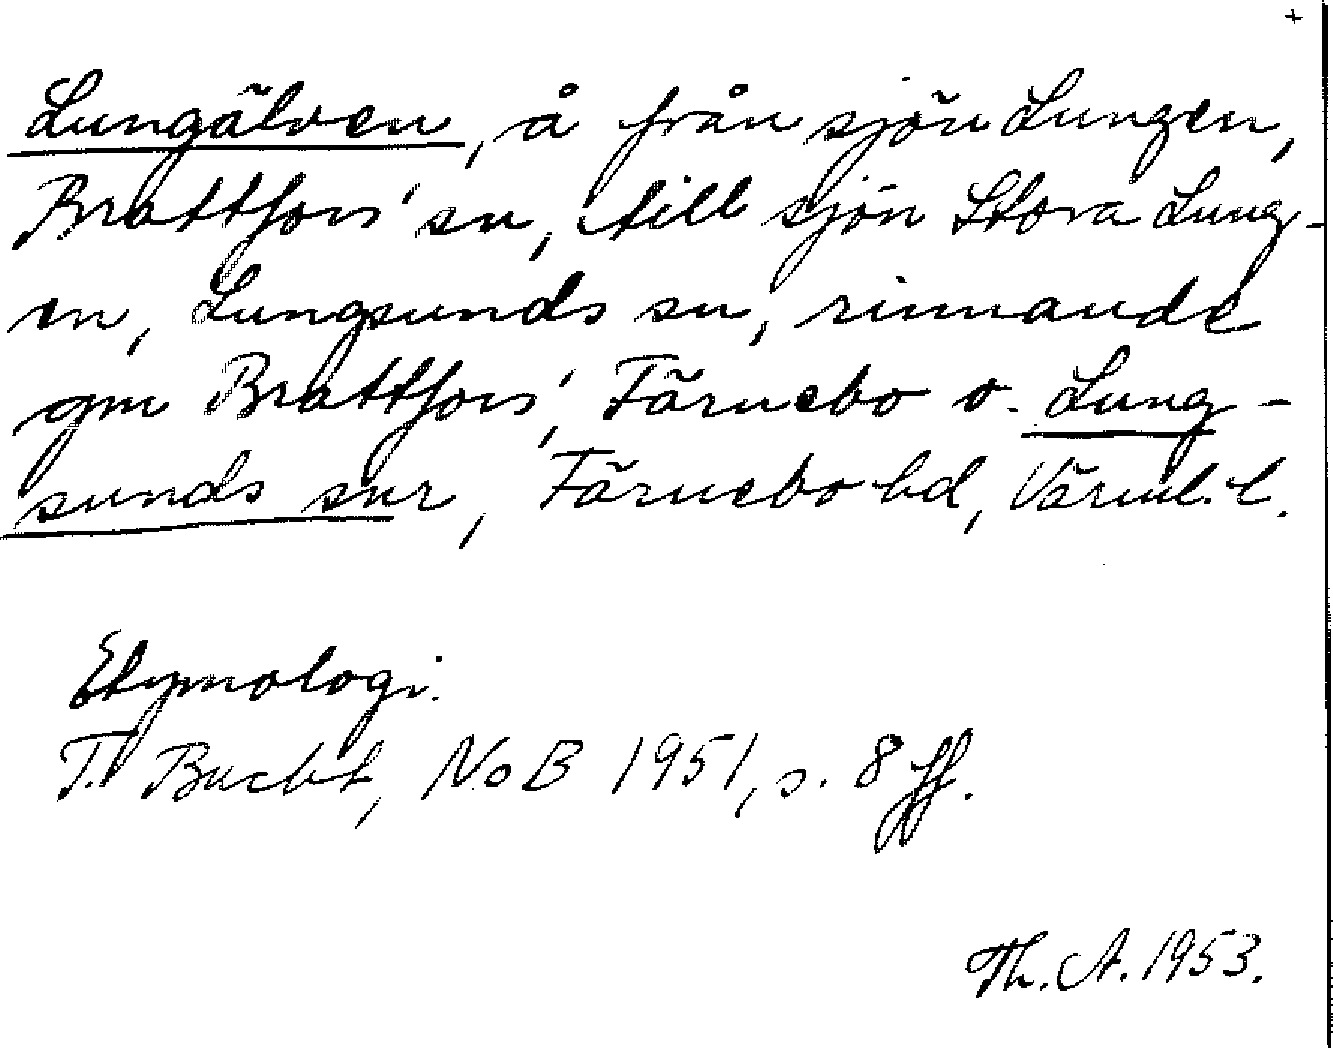 +
Lungälven, å från sjön Lungen,
Brattfors' sn, till sjön Stora Lung-
en, Lungsunds sn, rinnande
gm Brattfors', Färnebo o. Lung-
sunds snr, Färnebo hd, Värml. l.
Etymologi.
T. Bucht, NoB 1951, s. 8 ff.
Th. A. 1953.